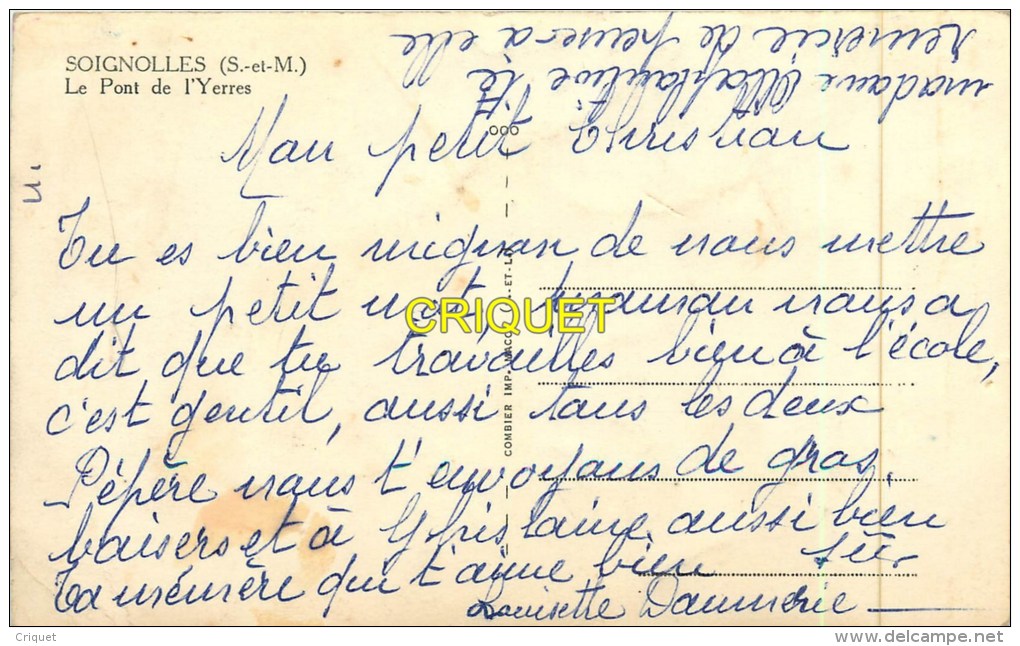 SOIGNOLLES (S.-et-M.)
Le Pont de l'Yerres
madame te
remercie de pensera elle
Mon petit Christian
Tu es bien mignon de nous mettre
un petit mot, maman nous a
dit que tu travailles bien à l'école,
c'est gentil, aussi tous les deux
Pépère nous t'envoyons de gros
baisers et à Ghislaine aussi bien
sûr
Ta mémère qui t'aime bien
Louisette
COMBIER IMP. MACON
CRIQUET
Criquet
www.delcampe.net